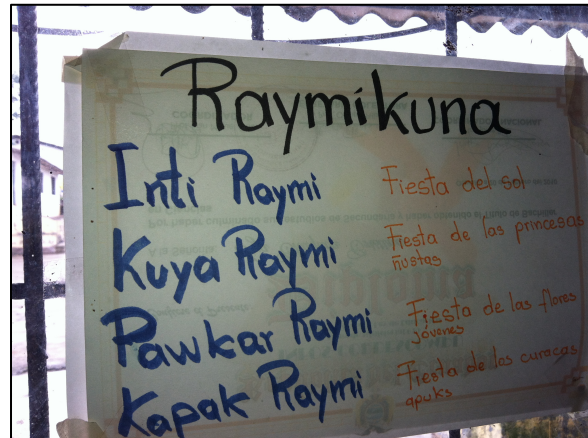 Raymikuna
Inti Raymi Fiesta del sol
Kuya Raymi Fiesta de las princesas
ñustas
Pawkar Raymi Fiesta de las flores
jóvenes
Kapak Raymi Fiesta de los curacas
apuks